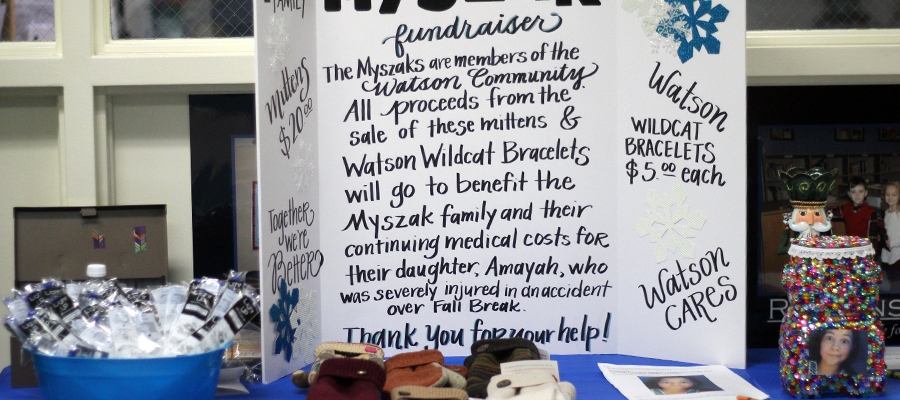 FAMILY
Mittens
$20.00
Together
we're
Better
MYSZAK
fundraiser
The Myszaks are members of the
Watson Community.
All proceeds from the
sale of these mittens &
Watson Wildcat Bracelets
will go to benefit the
Myszak family and their
continuing medical costs for
their daughter, Amayah, who
was severely injured in an accident
over Fall Break.
Thank you for your help!
Watson
WILDCAT
BRACELETS
$5.00 each
Watson
CARES